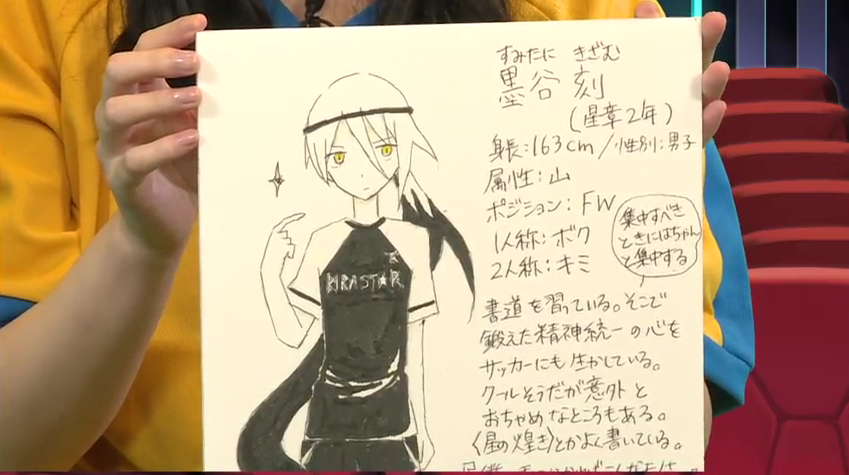 すみたに きざむ
墨谷 刻
(星章2年)
身長:163cm/性別:男子
属性:山
ポジション:FW
1人称:ボク
2人称:キミ
集中すべき
ときにはちゃん
と集中する
書道を習っている。そこで
鍛えた精神統一の心を
サッカーにも生かしている。
クールそうだが意外と
おちゃめなところもある。
〈星の煌き〉とかよく書いている。
KIRASTAR